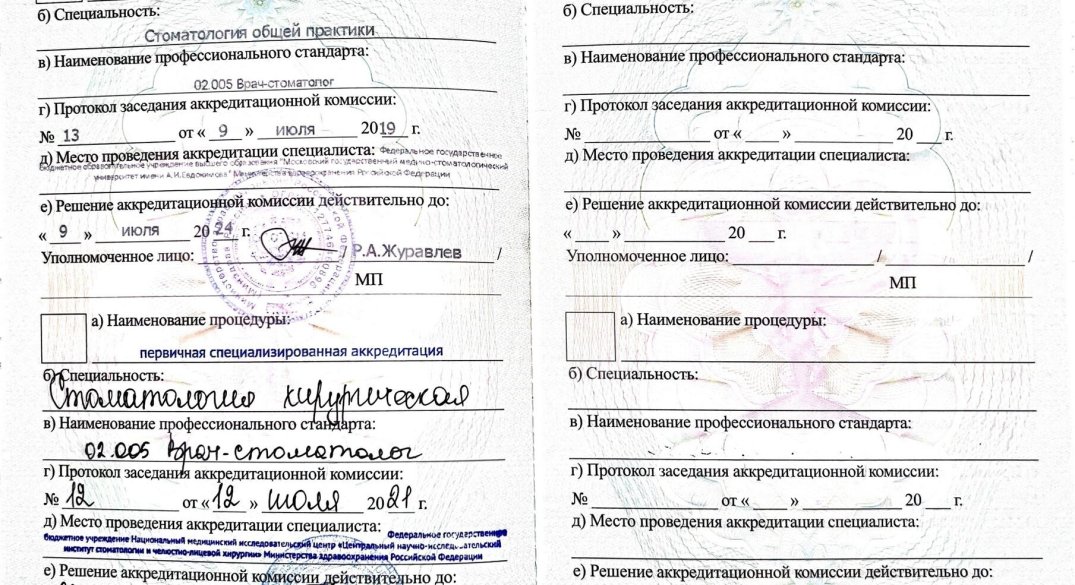 б) Специальность:
Стоматология общей практики
в) Наименование профессионального стандарта:
02.005 Врач-стоматолог
г) Протокол заседания аккредитационной комиссии:
№ 13 от « 9 » июля 2019 г.
д) Место проведения аккредитации специалиста: Федеральное государственное
бюджетное образовательное учреждение высшего образования "Московский государственный медико-стоматологический
университет имени А.И.Евдокимова" Министерства здравоохранения Российской Федерации
е) Решение аккредитационной комиссии действительно до:
« 9 » июля 2024 г.
Уполномоченное лицо: / Р.А.Журавлев /
МП
а) Наименование процедуры:
первичная специализированная аккредитация
б) Специальность:
Стоматология хирургическая
в) Наименование профессионального стандарта:
02.005 Врач-стоматолог
г) Протокол заседания аккредитационной комиссии:
№ 12 от « 12 » июля 2021 г.
д) Место проведения аккредитации специалиста: Федеральное государственное
бюджетное учреждение Национальный медицинский исследовательский центр «Центральный научно-исследовательский
институт стоматологии и челюстно-лицевой хирургии» Министерства здравоохранения Российской Федерации
е) Решение аккредитационной комиссии действительно до:
б) Специальность:
в) Наименование профессионального стандарта:
г) Протокол заседания аккредитационной комиссии:
№ от « » 20 г.
д) Место проведения аккредитации специалиста:
е) Решение аккредитационной комиссии действительно до:
« » 20 г.
Уполномоченное лицо: / /
МП
а) Наименование процедуры:
б) Специальность:
в) Наименование профессионального стандарта:
г) Протокол заседания аккредитационной комиссии:
№ от « » 20 г.
д) Место проведения аккредитации специалиста:
е) Решение аккредитационной комиссии действительно до: